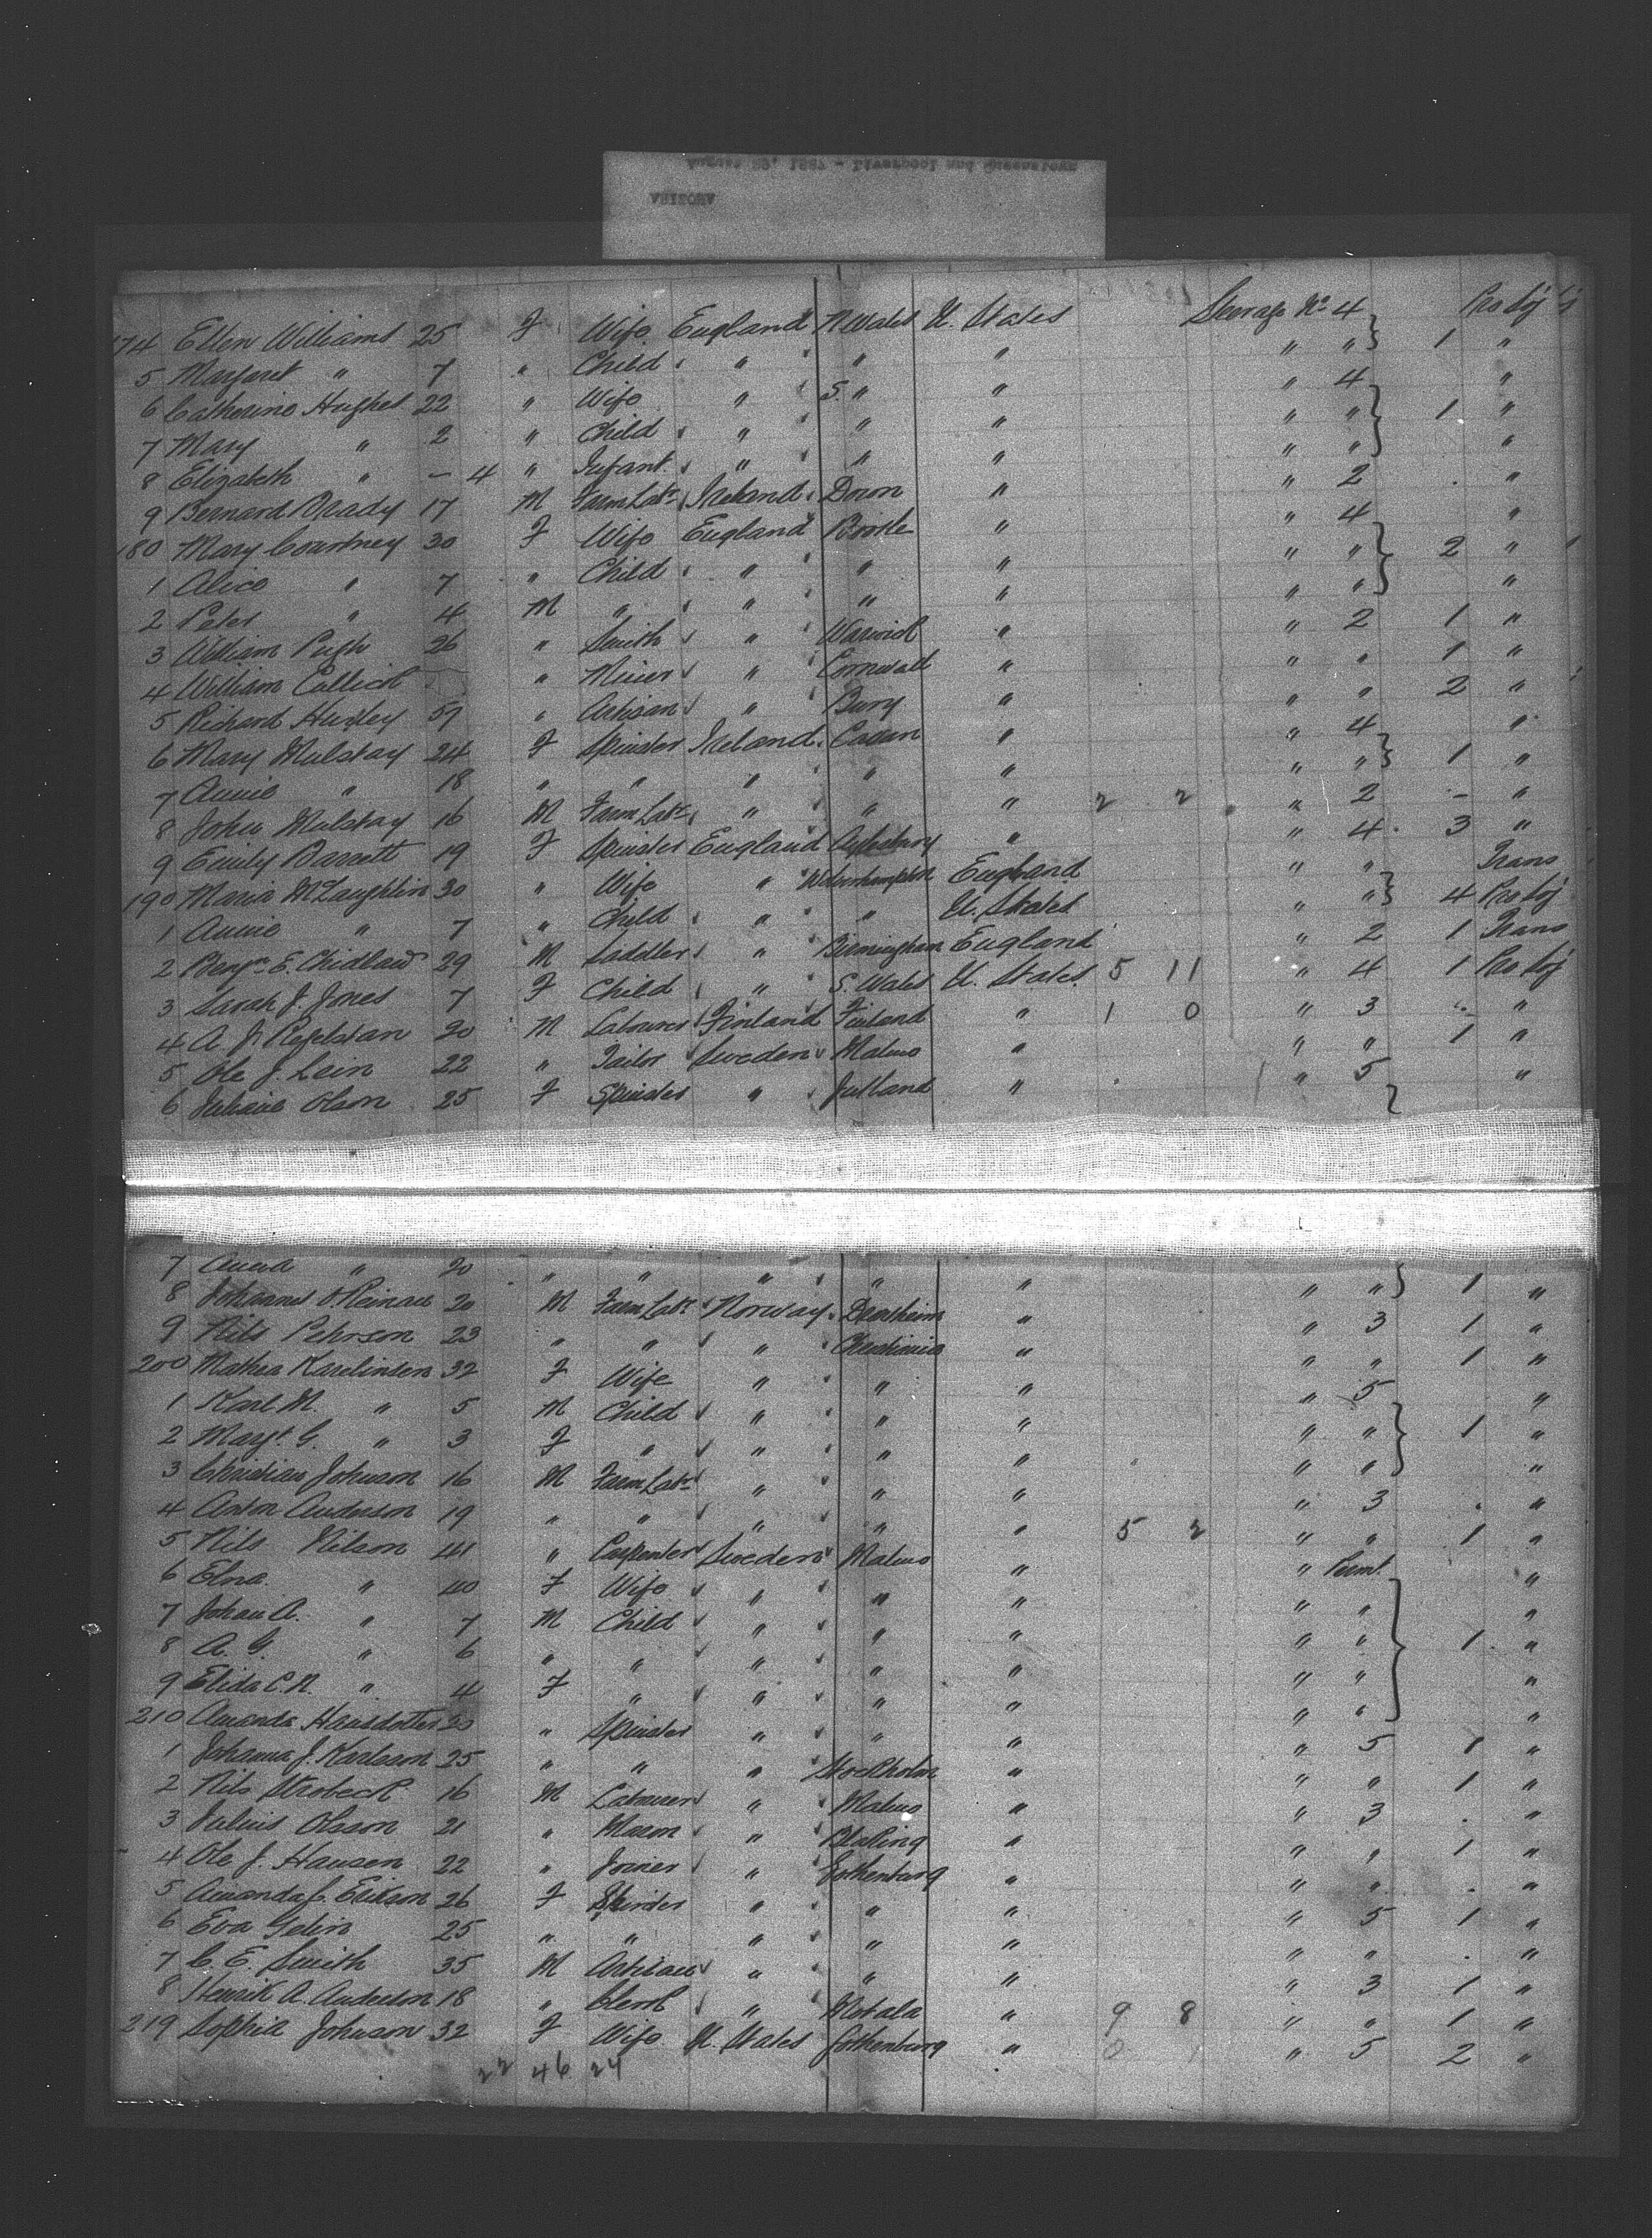 August 29, 1887 - Liverpool and Queenstown
174 Ellen Williams 25 F Wife England N Wales U. States Steerage No 4 Pro Soj
5 Margaret " 7 " Child " " " " " 1 "
6 Catherine Hughes 22 " Wife " S. " " " 4 "
7 Mary " 2 " Child " " " " " 1 "
8 Elizabeth " - 4 " Infant " " " " " "
9 Bernard Brady 17 M Farm Labr Ireland Down " " 2 . "
180 Mary Courtney 30 F Wife England Bootle " " 4 "
1 Alice " 7 " Child " " " " " 2 "
2 Peter " 4 M " " " " " " "
3 William Pugh 26 " Smith " Warwick " " 2 1 "
4 William " Miner " Cornwall " " " 1 "
5 Richard Huxley 59 " Artisan " Bury " " " 2 "
6 Mary Mulstay 24 F Spinster Ireland Cavan " " 4 "
7 Annie " 18 " " " " " " " 1 "
8 John Mulstay 16 M Farm Labr " " " 2 2 " 2 - "
9 Emily Barrett 19 F Spinster England Aylesbury " " 4 3 "
190 Maria McLaughlin 30 " Wife " Wolverhampton England " " Trans
1 Annie " 7 " Child " " U. States " " 4 Pro Soj
2 Benjn E. Chidlaw 29 M Saddler " Birmingham England " 2 1 Trans
3 Sarah J. Jones 7 F Child " S. Wales U. States 5 11 " 4 1 Pro Soj
4 A. J. 20 M Labourer Finland Finland " 1 0 " 3 - "
5 Ole J. Lein 22 " Tailor Sweden Malmo " " " 1 "
6 Olson 25 F Spinster " Jutland " " 5 "
7 Anna " 20 " " " " " " " 1 "
8 Johannes 20 M Farm Labr Norway Drontheim " " 3 1 "
9 Nils Pehrson 23 " " " Christiania " " " 1 "
200 Mathea Karelinsen 32 F Wife " " " " 5 "
1 Karl M. " 5 M Child " " " " " 1 "
2 Margt. G. " 3 F " " " " " " "
3 Christian Johnson 16 M Farm Labr " " " " 3 . "
4 Anton Anderson 19 " " " " " 5 2 " " 1 "
5 Nils Nilson 41 " Carpenter Sweden Malmo " " Permt. "
6 Elna " 40 F Wife " " " " " "
7 Johan A. " 7 M Child " " " " " 1 "
8 A. G. " 6 " " " " " " " "
9 Elida C. N. " 4 F " " " " " " "
210 Amanda Hansdotter 20 " Spinster " " " " 5 1 "
1 Johanna J. Karlsson 25 " " " Stockholm " " " 1 "
2 Nils Strobeck 16 M Labourer " Malmo " " 3 . "
3 Julius Olsson 21 " Mason " Bleking " " " 1 "
4 Ole J. Hansen 22 " Joiner " Gothenburg " " " . "
5 Amanda C. Erikson 26 F Spinster " " " " 5 1 "
6 Eva Gelin 25 " " " " " " " . "
7 C. E. Smith 35 M Artisan " " " " 3 1 "
8 Henrik A. Anderson 18 " Clerk " Motala " 9 8 " " 1 "
219 Sophia Johnson 32 F Wife U. States Gothenburg " 0 " 5 2 "
22 46 24